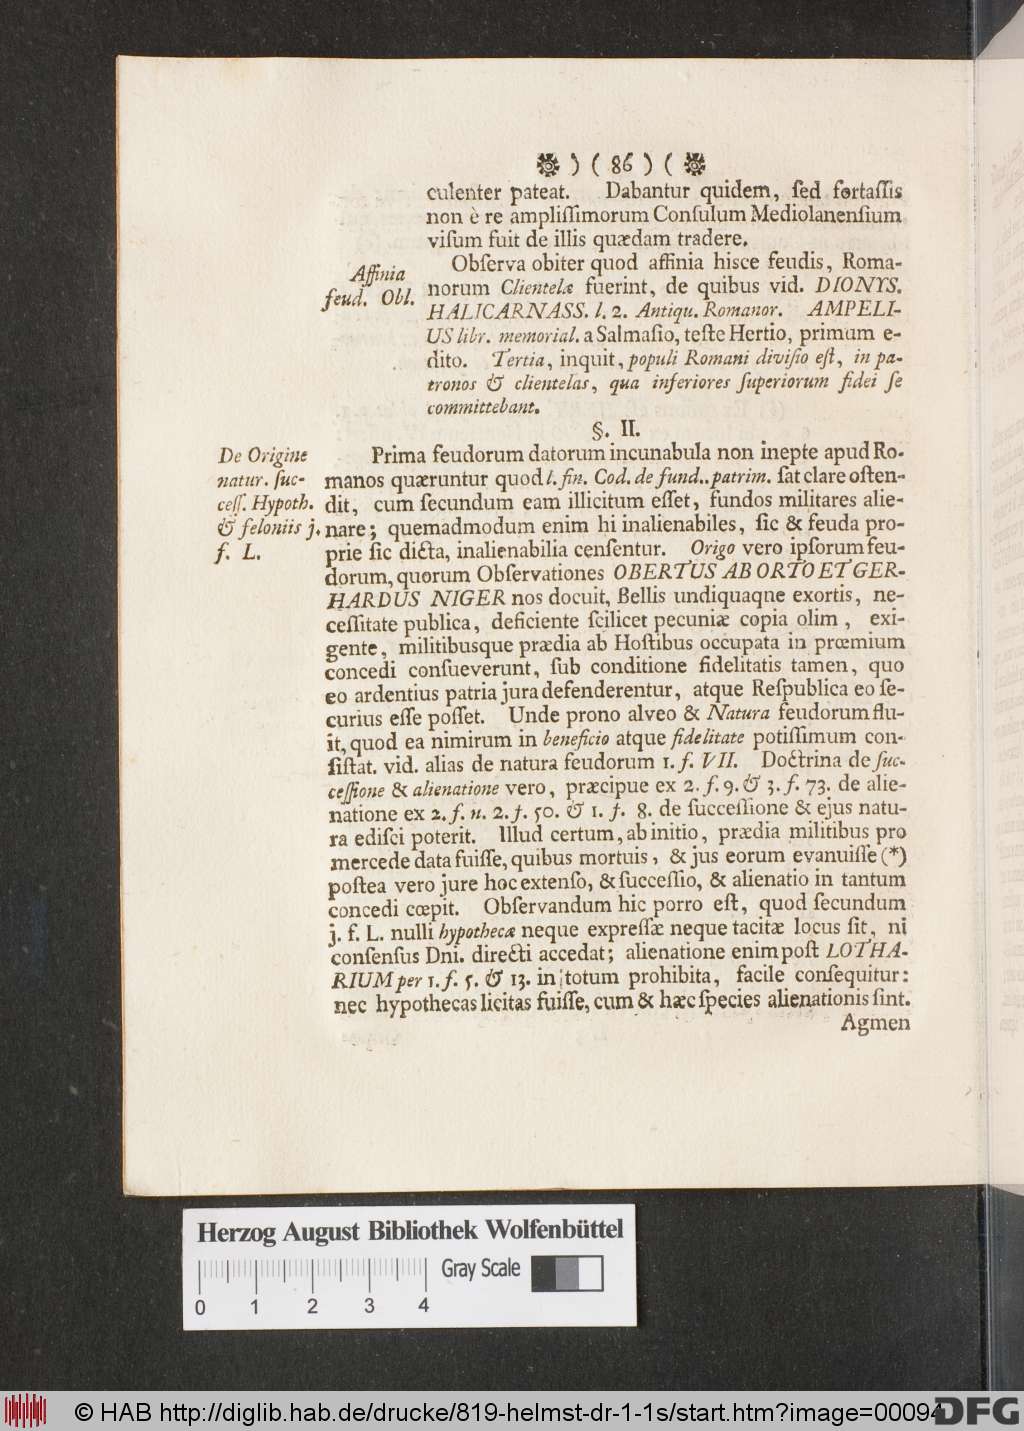 ) ( 86 ) (
culenter pateat. Dabantur quidem, ſed fortaſſis
non è re ampliſſimorum Conſulum Mediolanenſium
viſum fuit de illis quædam tradere.
Affinia
feud. Obl.
Obſerva obiter quod affinia hisce feudis, Roma-
norum Clientelæ fuerint, de quibus vid. DIONYS.
HALICARNASS. l. 2. Antiqu. Romanor. AMPELI-
US libr. memorial. a Salmaſio, teſte Hertio, primum e-
dito. Tertia, inquit, populi Romani diviſio eſt, in pa-
tronos & clientelas, qua inferiores ſuperiorum fidei ſe
committebant.
§. II.
De Origine
natur. ſuc-
ceſſ. Hypoth.
& feloniis j.
f. L.
Prima feudorum datorum incunabula non inepte apud Ro-
manos quæruntur quod l. fin. Cod. de fund.. patrim. ſat clare oſten-
dit, cum ſecundum eam illicitum eſſet, fundos militares alie-
nare; quemadmodum enim hi inalienabiles, ſic & feuda pro-
prie ſic dicta, inalienabilia cenſentur. Origo vero ipſorum feu-
dorum, quorum Obſervationes OBERTUS AB ORTO ET GER-
HARDUS NIGER nos docuit, Bellis undiquaqne exortis, ne-
ceſſitate publica, deficiente ſcilicet pecuniæ copia olim, exi-
gente, militibusque prædia ab Hoſtibus occupata in prœmium
concedi conſueverunt, ſub conditione fidelitatis tamen, quo
eo ardentius patria jura defenderentur, atque Reſpublica eo ſe-
curius eſſe poſſet. Unde prono alveo & Natura feudorum flu-
it, quod ea nimirum in beneficio atque fidelitate potiſſimum con-
ſiſtat. vid. alias de natura feudorum 1. f. VII. Doctrina de ſuc-
ceſſione & alienatione vero, præcipue ex 2. f. 9. & 3. f. 73. de alie-
natione ex 2. f. n. 2. f. 50. & 1. f. 8. de ſucceſſione & ejus natu-
ra ediſci poterit. Illud certum, ab initio, prædia militibus pro
mercede data fuiſſe, quibus mortuis, & jus eorum evanuiſſe (*)
poſtea vero jure hoc extenſo, & ſucceſſio, & alienatio in tantum
concedi cœpit. Obſervandum hic porro eſt, quod ſecundum
j. f. L. nulli hypothecæ neque expreſſæ neque tacitæ locus ſit, ni
conſenſus Dni. directi accedat; alienatione enim poſt LOTHA-
RIUM per 1. f. 5. & 13. in totum prohibita, facile conſequitur:
nec hypothecas licitas fuiſſe, cum & hæc ſpecies alienationis ſint.
Agmen
Herzog August Bibliothek Wolfenbüttel
Gray Scale
0 1 2 3 4
© HAB http://diglib.hab.de/drucke/819-helmst-dr-1-1s/start.htm?image=00094
DFG